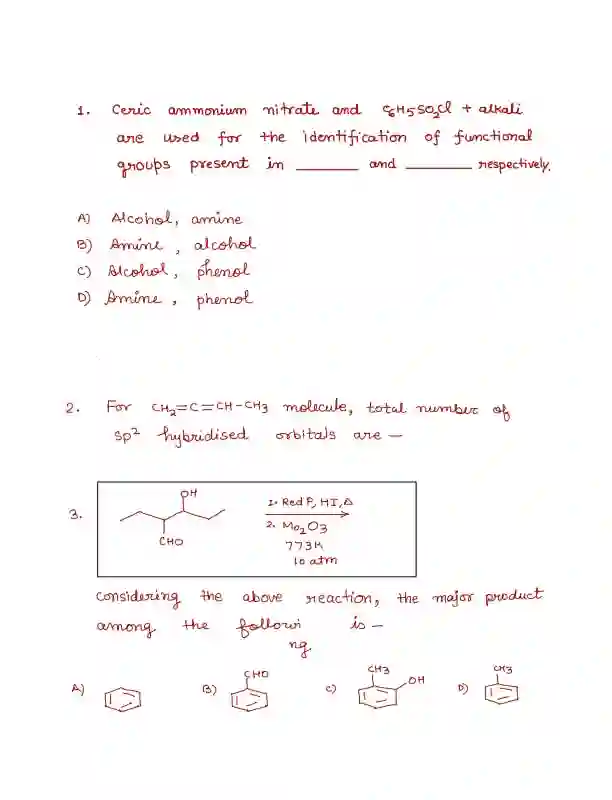 1. Ceric ammonium nitrate and C6H5SO2Cl + alkali
are used for the identification of functional
groups present in ________ and ________ respectively.
A) Alcohol, amine
B) Amine, alcohol
C) Alcohol, phenol
D) Amine, phenol
2. For CH2=C=CH-CH3 molecule, total number of
sp2 hybridised orbitals are —
3.
OH
CHO
1. Red P, HI, Δ
2. Mo2O3
773K
10 atm
considering the above reaction, the major product
among the followi is —
ng
A)
B) CHO
C) CH3 OH
D) CH3